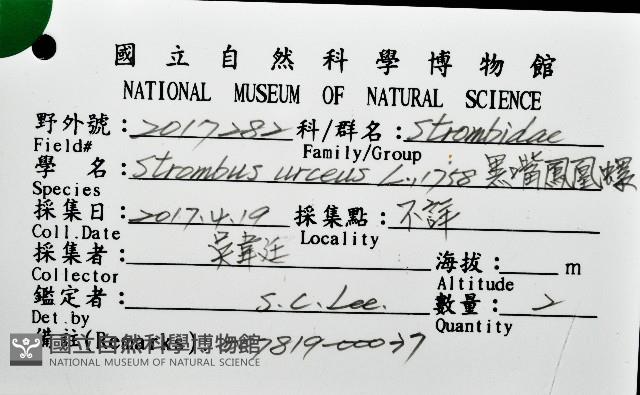 國立自然科學博物館
NATIONAL MUSEUM OF NATURAL SCIENCE
野外號：2017282 科/群名：Strombidae
Field# Family/Group
學 名：Strombus urceus L., 1758 黑嘴鳳凰螺
Species
採集日：2017.4.19 採集點：不詳
Coll.Date Locality
採集者：吳韋廷 海拔： m
Collector Altitude
鑑定者： S.C.Lee. 數量： 2
Det.by Quantity
備註(Remarks) 7819-00037
國立自然科學博物館
NATIONAL MUSEUM OF NATURAL SCIENCE